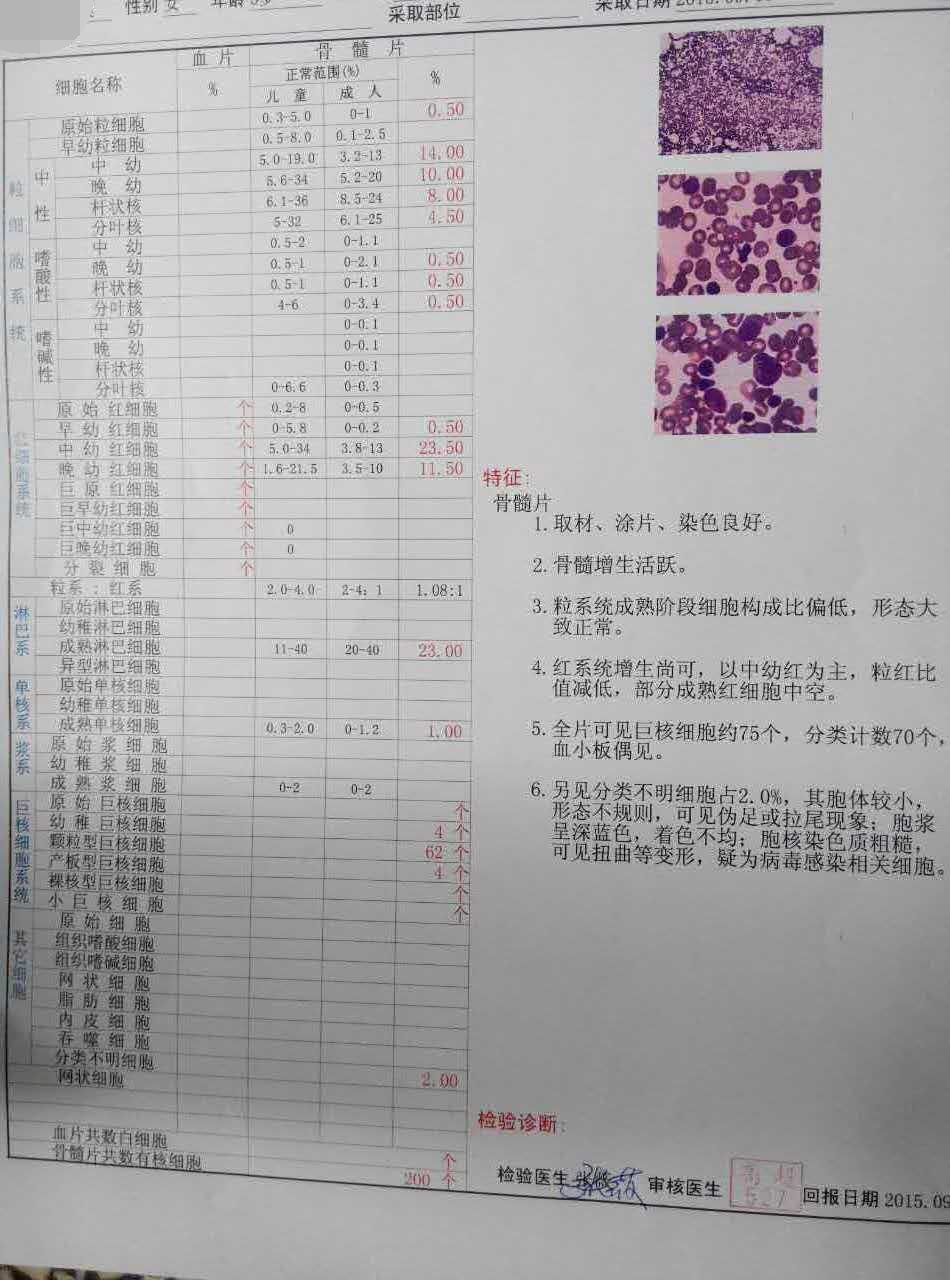 性别 女 年龄
采取部位
采取日期
细胞名称 血片 骨髓片
% 正常范围(%) %
儿童 成人
粒细胞系统
原始粒细胞 0.3-5.0 0-1 0.50
早幼粒细胞 0.5-8.0 0.1-2.5
中性
中幼 5.0-19.0 3.2-13 14.00
晚幼 5.6-34 5.2-20 10.00
杆状核 6.1-36 8.5-24 8.00
分叶核 5-32 6.1-25 4.50
嗜酸性
中幼 0.5-2 0-1.1
晚幼 0.5-1 0-2.1 0.50
杆状核 0.5-1 0-1.1 0.50
分叶核 4-6 0-3.4 0.50
嗜碱性
中幼 0-0.1
晚幼 0-0.1
杆状核 0-0.1
分叶核 0-6.6 0-0.3
红细胞系统
原始红细胞 个 0.2-8 0-0.5
早幼红细胞 个 0-5.8 0-0.2 0.50
中幼红细胞 个 5.0-34 3.8-13 23.50
晚幼红细胞 个 1.6-21.5 3.5-10 11.50
巨原红细胞 个
巨早幼红细胞 个
巨中幼红细胞 个 0
巨晚幼红细胞 个 0
分裂细胞 个
粒系:红系 2.0-4.0 2-4:1 1.08:1
淋巴系
原始淋巴细胞
幼稚淋巴细胞
成熟淋巴细胞 11-40 20-40 23.00
异型淋巴细胞
单核系
原始单核细胞
幼稚单核细胞
成熟单核细胞 0.3-2.0 0-1.2 1.00
浆系
原始浆细胞
幼稚浆细胞
成熟浆细胞 0-2 0-2
巨核细胞系统
原始巨核细胞 个
幼稚巨核细胞 4 个
颗粒型巨核细胞 62 个
产板型巨核细胞 4 个
裸核型巨核细胞 个
小巨核细胞 个
其它细胞
原始细胞
组织嗜酸细胞
组织嗜碱细胞
网状细胞
脂肪细胞
内皮细胞
吞噬细胞
分类不明细胞
网状细胞 2.00
血片共数白细胞 个
骨髓片共数有核细胞 200 个
特征:
骨髓片
1.取材、涂片、染色良好。
2.骨髓增生活跃。
3.粒系统成熟阶段细胞构成比偏低，形态大
致正常。
4.红系统增生尚可，以中幼红为主，粒红比
值减低，部分成熟红细胞中空。
5.全片可见巨核细胞约75个，分类计数70个，
血小板偶见。
6.另见分类不明细胞占2.0%，其胞体较小，
形态不规则，可见伪足或拉尾现象；胞浆
呈深蓝色，着色不均；胞核染色质粗糙，
可见扭曲等变形，疑为病毒感染相关细胞。
检验诊断:
检验医生 审核医生 527 回报日期 2015.09